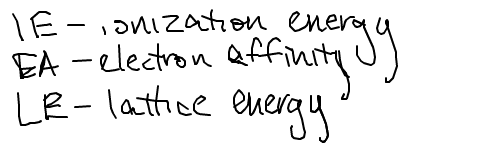 IE - ionization energy
EA - electron affinity
LE - lattice energy